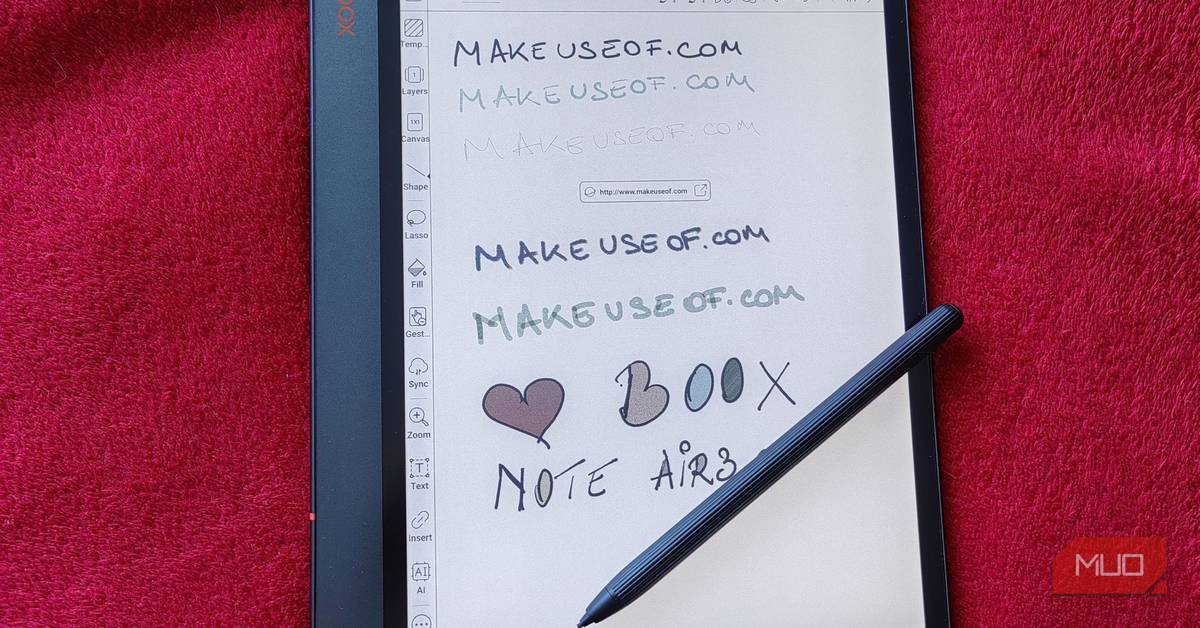 BOOX
Temp...
1
Layers
1X1
Canvas
Shape
Lasso
Fill
Gest...
Sync
Zoom
T
Text
Insert
AI
AI
MAKEUSEOF.COM
MAKEUSEOF.COM
MAKEUSEOF.COM
http://www.makeuseof.com
MAKEUSEOF.COM
MAKEUSEOF.COM
BOOX
NOTE AIR3
MUO